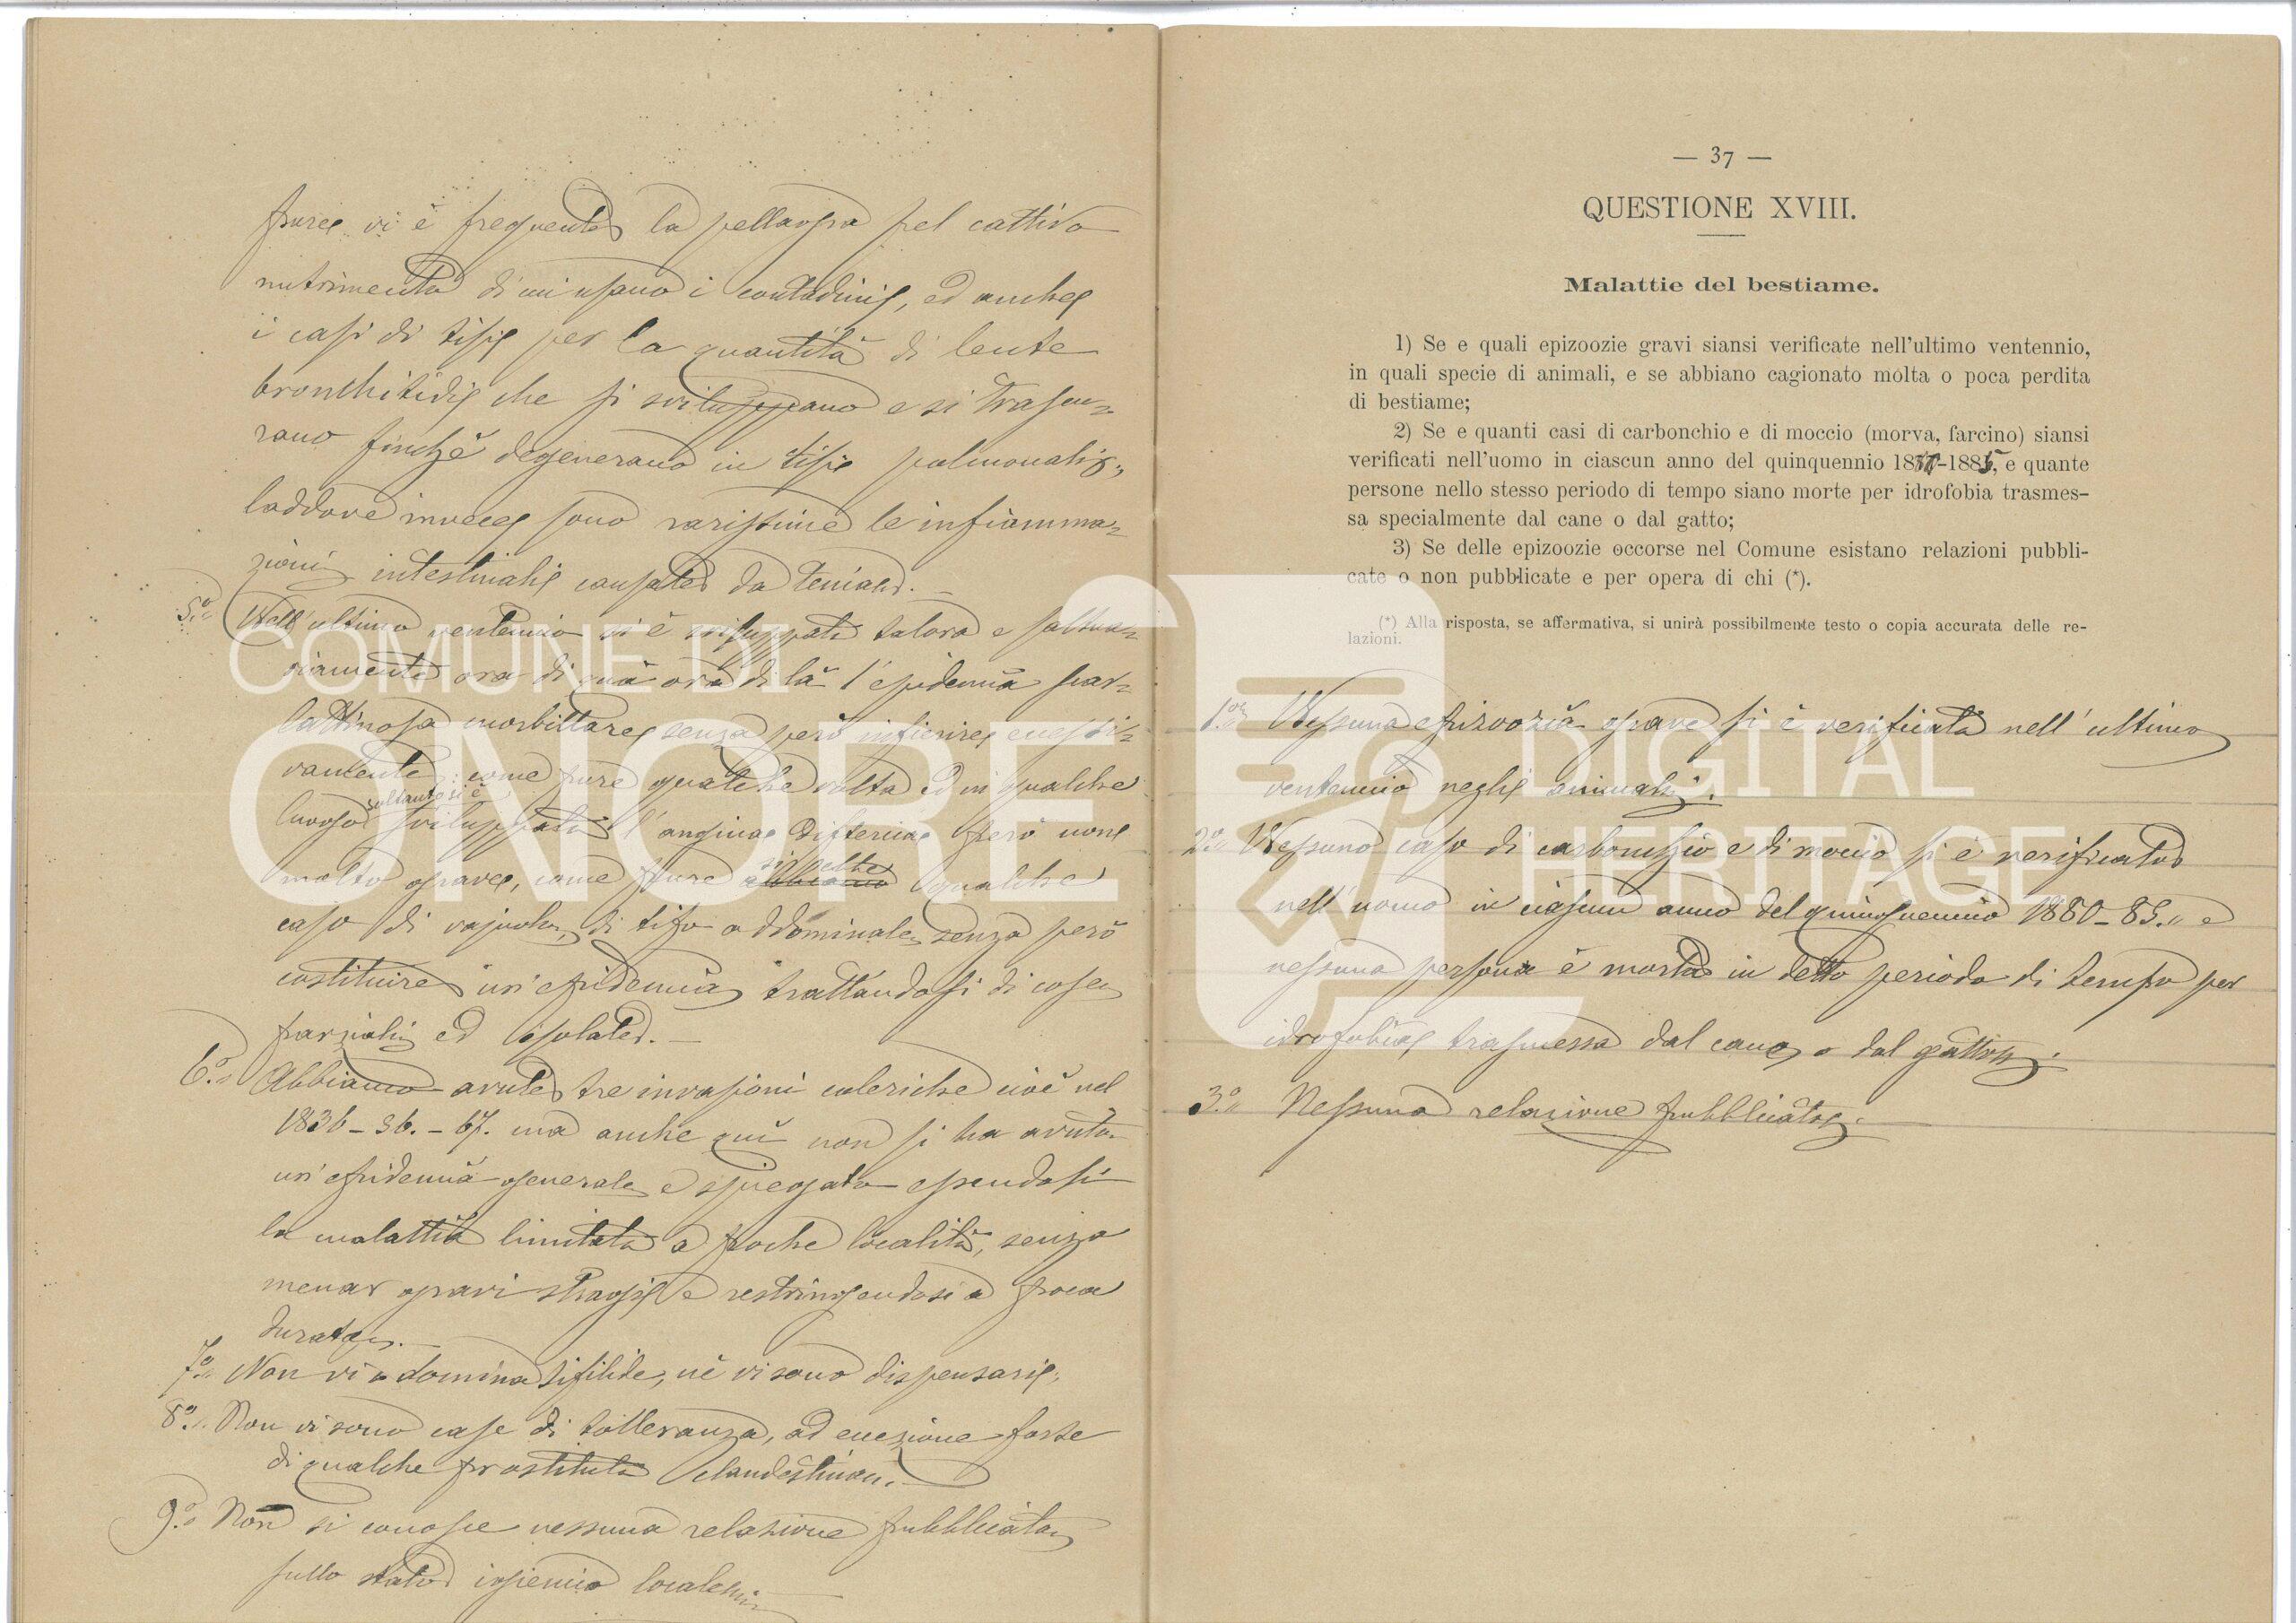 pure vi è frequente la pellagra pel cattivo
nutrimento di cui usano i contadini, ed anche
i casi di tisi per la quantità di lente
bronchitidi che si sviluppano e si trascu=
rano finchè degenerano in tisi polmonali;
laddove invece sono rarissime le infiamma=
zioni intestinali causate da tenia.
5.° Nell'ultimo ventennio si è sviluppata talora e saltua=
riamente ora di quà ora di là l'epidemia scar=
lattinosa morbillare senza però infierire eccessi=
vamente; come pure qualche volta ed in qualche
luogo soltanto si è sviluppata l'angina difterica però non
molto grave, come pure si ebbe qualche
caso di vajuolo, di tifo addominale senza però
costituire un'epidemia trattandosi di casi
parziali ed isolati.
6.° Abbiamo avute tre invasioni coleriche cioè nel
1836-56.-67. ma anche quì non si ha avuta
un'epidemia generale e spiegata essendosi
la malattia limitata a poche località, senza
menar gravi stragi e restringendosi a poca
durata.
7.° Non vi domina sifilide, nè vi sono dispensari;
8.° Non vi sono case di tolleranza, ad eccezione forse
di qualche prostituta clandestina.
9.° Non si conosce nessuna relazione pubblicata
sullo stato igienico locale
— 37 —
QUESTIONE XVIII.
Malattie del bestiame.
1) Se e quali epizoozie gravi siansi verificate nell'ultimo ventennio,
in quali specie di animali, e se abbiano cagionato molta o poca perdita
di bestiame;
2) Se e quanti casi di carbonchio e di moccio (morva, farcino) siansi
verificati nell'uomo in ciascun anno del quinquennio -1885, e quante
persone nello stesso periodo di tempo siano morte per idrofobia trasmes-
sa specialmente dal cane o dal gatto;
3) Se delle epizoozie occorse nel Comune esistano relazioni pubbli-
cate o non pubblicate e per opera di chi (*).
(*) Alla risposta, se affermativa, si unirà possibilmente testo o copia accurata delle re-
lazioni.
1.° Nessuna epizoozia grave si è verificata nell'ultimo
ventennio negli animali.
2.° Nessuno caso di carbonchio e di moccio si è verificato
nell'uomo in ciascun anno del quinquennio 1880-85. e
nessuna persona è morta in detto periodo di tempo per
idrofobia trasmessa dal cane o dal gatto.
3.° Nessuna relazione pubblicata.
COMUNE DI
ONORE
DIGITAL
HERITAGE